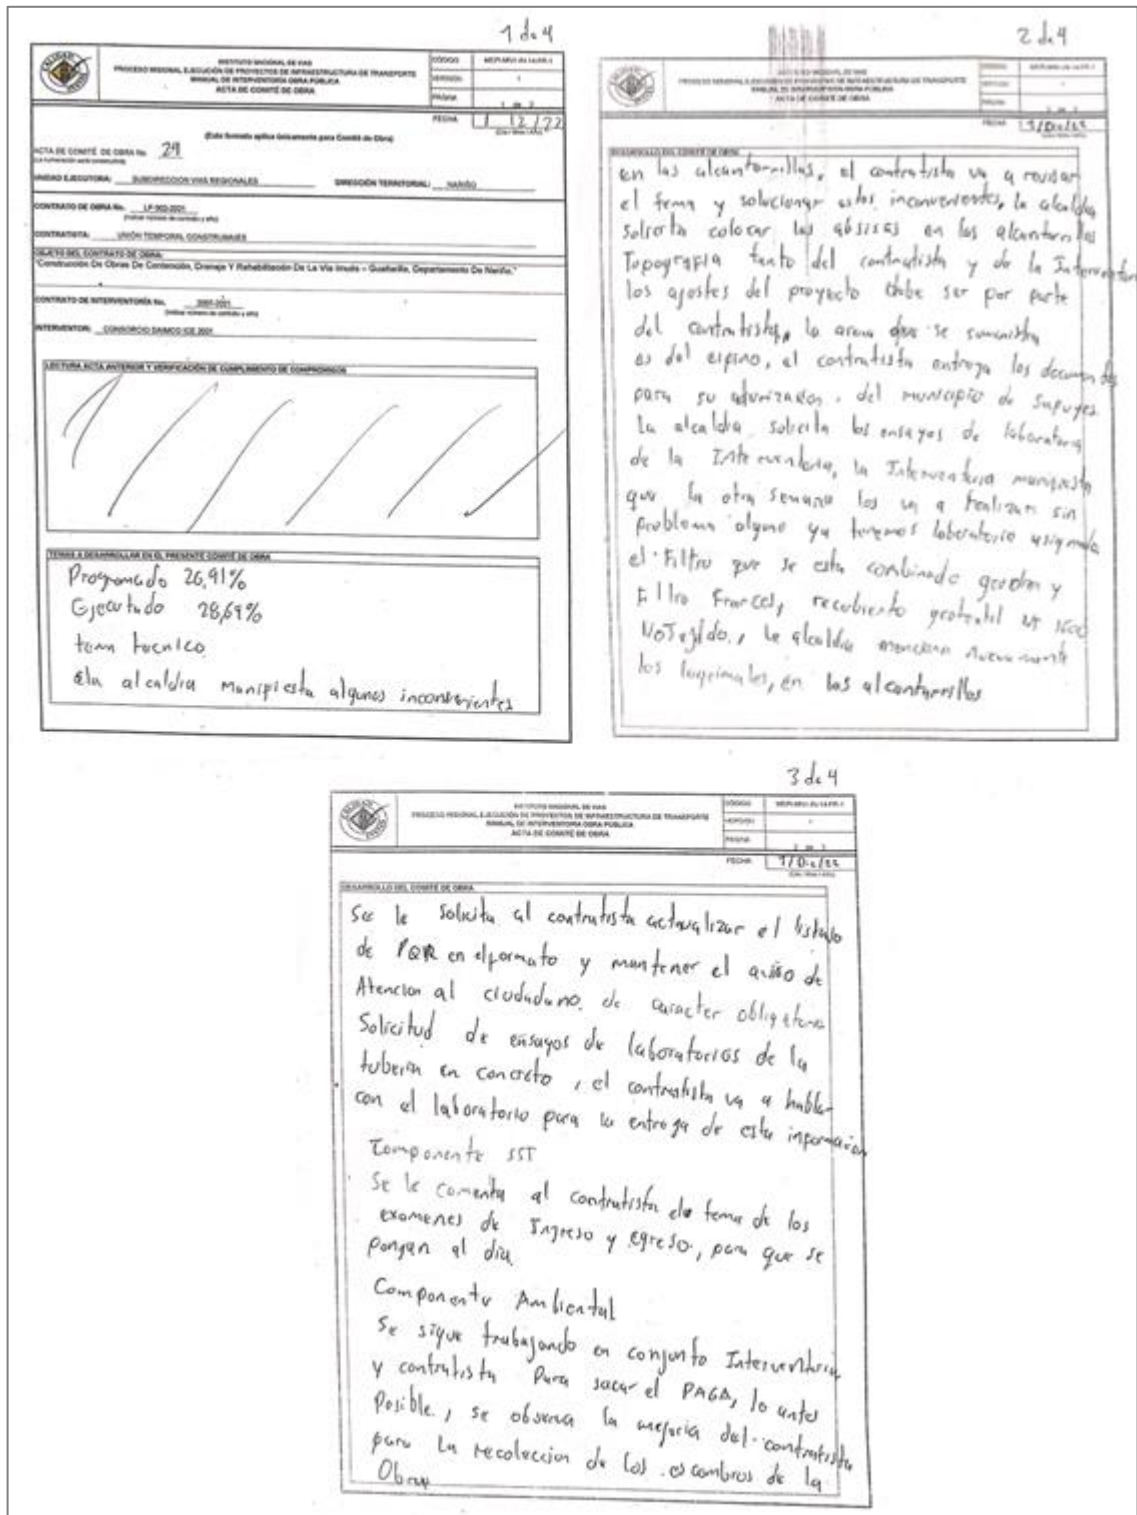 1 de 4
INSTITUTO NACIONAL DE VIAS
PROCESO MISIONAL EJECUCIÓN DE PROYECTOS DE INFRAESTRUCTURA DE TRANSPORTE
MANUAL DE INTERVENTORÍA OBRA PÚBLICA
ACTA DE COMITÉ DE OBRA
CÓDIGO
VERSIÓN 1
PÁGINA 1 de 3
FECHA 1/12/22
(Este formato aplica únicamente para Comité de Obra)
ACTA DE COMITÉ DE OBRA No. 29
UNIDAD EJECUTORA: SUBDIRECCION VIAS REGIONALES DIRECCIÓN TERRITORIAL: NARIÑO
CONTRATO DE OBRA No. LP-002-2021
(Indicar número de contrato y año)
CONTRATISTA: UNIÓN TEMPORAL CONSTRUNAJES
OBJETO DEL CONTRATO DE OBRA:
"Construcción De Obras De Contención, Drenaje Y Rehabilitación De La Via Imués – Guaitarilla, Departamento De Nariño."
CONTRATO DE INTERVENTORÍA No. 0001-2021
(Indicar número de contrato y año)
INTERVENTOR: CONSORCIO DAIMCO ICE 2001
LECTURA ACTA ANTERIOR Y VERIFICACIÓN DE CUMPLIMIENTO DE COMPROMISOS
TEMAS A DESARROLLAR EN EL PRESENTE COMITÉ DE OBRA
Programado 26,91%
Ejecutado 28,69%
tema tecnico
la alcaldia manifiesta algunos inconvenientes
2 de 4
MANUAL DE INTERVENTORÍA OBRA PÚBLICA
ACTA DE COMITÉ DE OBRA
FECHA 1/Dic/22
DESARROLLO DEL COMITÉ DE OBRA
en las alcantarillas, el contratista va a revisar
el tema y solucionar estos inconvenientes, la alcaldia
solicita colocar las absisas en las alcantarillas
Topografia tanto del contratista y de la Interventoria
los ajostes del proyecto debe ser por parte
del contratista, la arena que se suministra
es del espino, el contratista entrega los documentos
para su del municipio de Sapuyes.
La alcaldia solicita los ensayos de laboratorio
de la Interventoria, la Interventoria manifiesta
que la otra semana los va a realizar sin
problema alguno ya tenemos laboratorio asignado
el Filtro que se esta combinado geodren y
Filtro Frances, recubierto geotextil NT 1600
NoTejido., la alcaldia menciona nuevamente
los lagrimales, en las alcantarillas
3 de 4
INSTITUTO NACIONAL DE VIAS
PROCESO MISIONAL EJECUCIÓN DE PROYECTOS DE INFRAESTRUCTURA DE TRANSPORTE
MANUAL DE INTERVENTORÍA OBRA PÚBLICA
ACTA DE COMITÉ DE OBRA
CÓDIGO
VERSIÓN
PÁGINA
FECHA 1/Dic/22
DESARROLLO DEL COMITÉ DE OBRA
Se le solicita al contratista actualizar el listado
de PQR en el formato y mantener el aviso de
Atencion al ciudadano. de caracter obligatorio
Solicitud de ensayos de laboratorios de la
tuberia en concreto, el contratista va a hablar
con el laboratorio para la entrega de esta informacion
Componente SST
Se le comenta al contratista el tema de los
examenes de Ingreso y egreso, para que se
pongan al dia.
Componente Ambiental
Se sigue trabajando en conjunto Interventoria
y contratista Para sacar el PAGA, lo antes
Posible., se observa la mejoria del contratista
para La recoleccion de los escombros de la
Obra